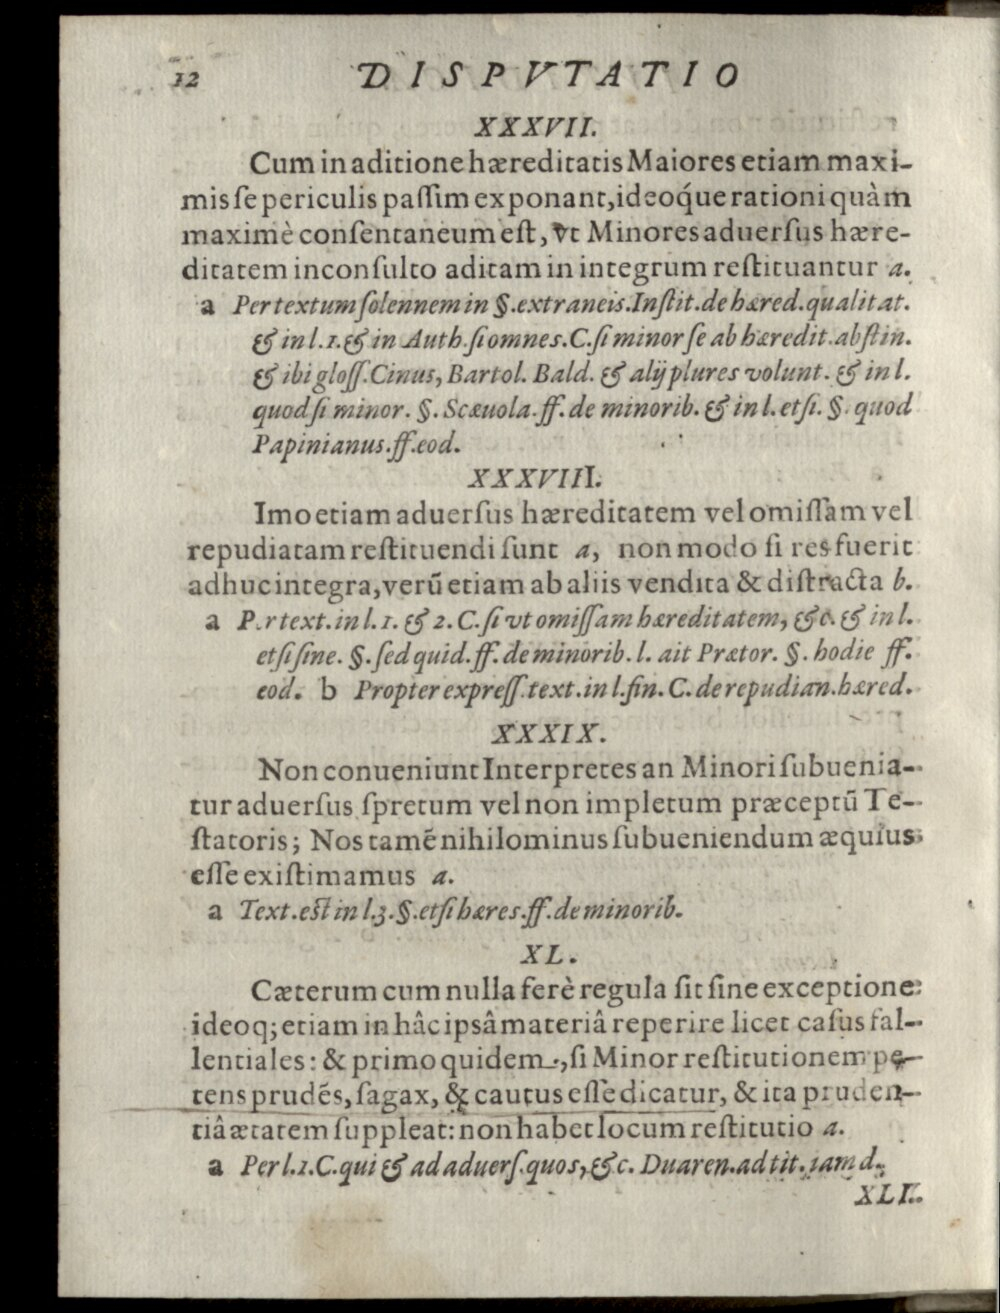 12 DISPVTATIO
XXXVII.
Cum in aditione hæreditatis Maiores etiam maxi-
mis se periculis passim exponant, ideoq́ue rationi quàm
maximè consentaneum est, vt Minores aduersus hære-
ditatem inconsulto aditam in integrum restituantur a.
a Per textum solennem in §. extraneis. Instit. de hæred. qualitat.
& in l. 1. & in Auth. si omnes. C. si minor se ab hæredit. abstin.
& ibi gloss. Cinus, Bartol. Bald. & alij plures volunt. & in l.
quod si minor. §. Scæuola. ff. de minorib. & in l. etsi. §. quod
Papinianus. ff. eod.
XXXVIII.
Imo etiam aduersus hæreditatem vel omissam vel
repudiatam restituendi sunt a, non modo si res fuerit
adhuc integra, verũ etiam ab aliis vendita & distracta b.
a P.r text. in l. 1. & 2. C. si vt omissam hæreditatem, &c. & in l.
etsi sine. §. sed quid. ff. de minorib. l. ait Prætor. §. hodie ff.
eod. b Propter express. text. in l. fin. C. de repudian. hæred.
XXXIX.
Non conueniunt Interpretes an Minori subuenia-
tur aduersus spretum vel non impletum præceptũ Te-
statoris; Nos tamẽ nihilominus subueniendum æquius
esse existimamus a.
a Text. est in l. 3. §. etsi hæres. ff. de minorib.
XL.
Cæterum cum nulla ferè regula sit sine exceptione:
ideoq; etiam in hâc ipsâ materiâ reperire licet casus fal-
lentiales: & primo quidem, si Minor restitutionem pe-
tens prudẽs, sagax, & cautus esse dicatur, & ita pruden-
tiâ ætatem suppleat: non habet locum restitutio a.
a Per l. 1. C. qui & ad aduers. quos, &c. Duaren. ad tit. iam d.
XLI.